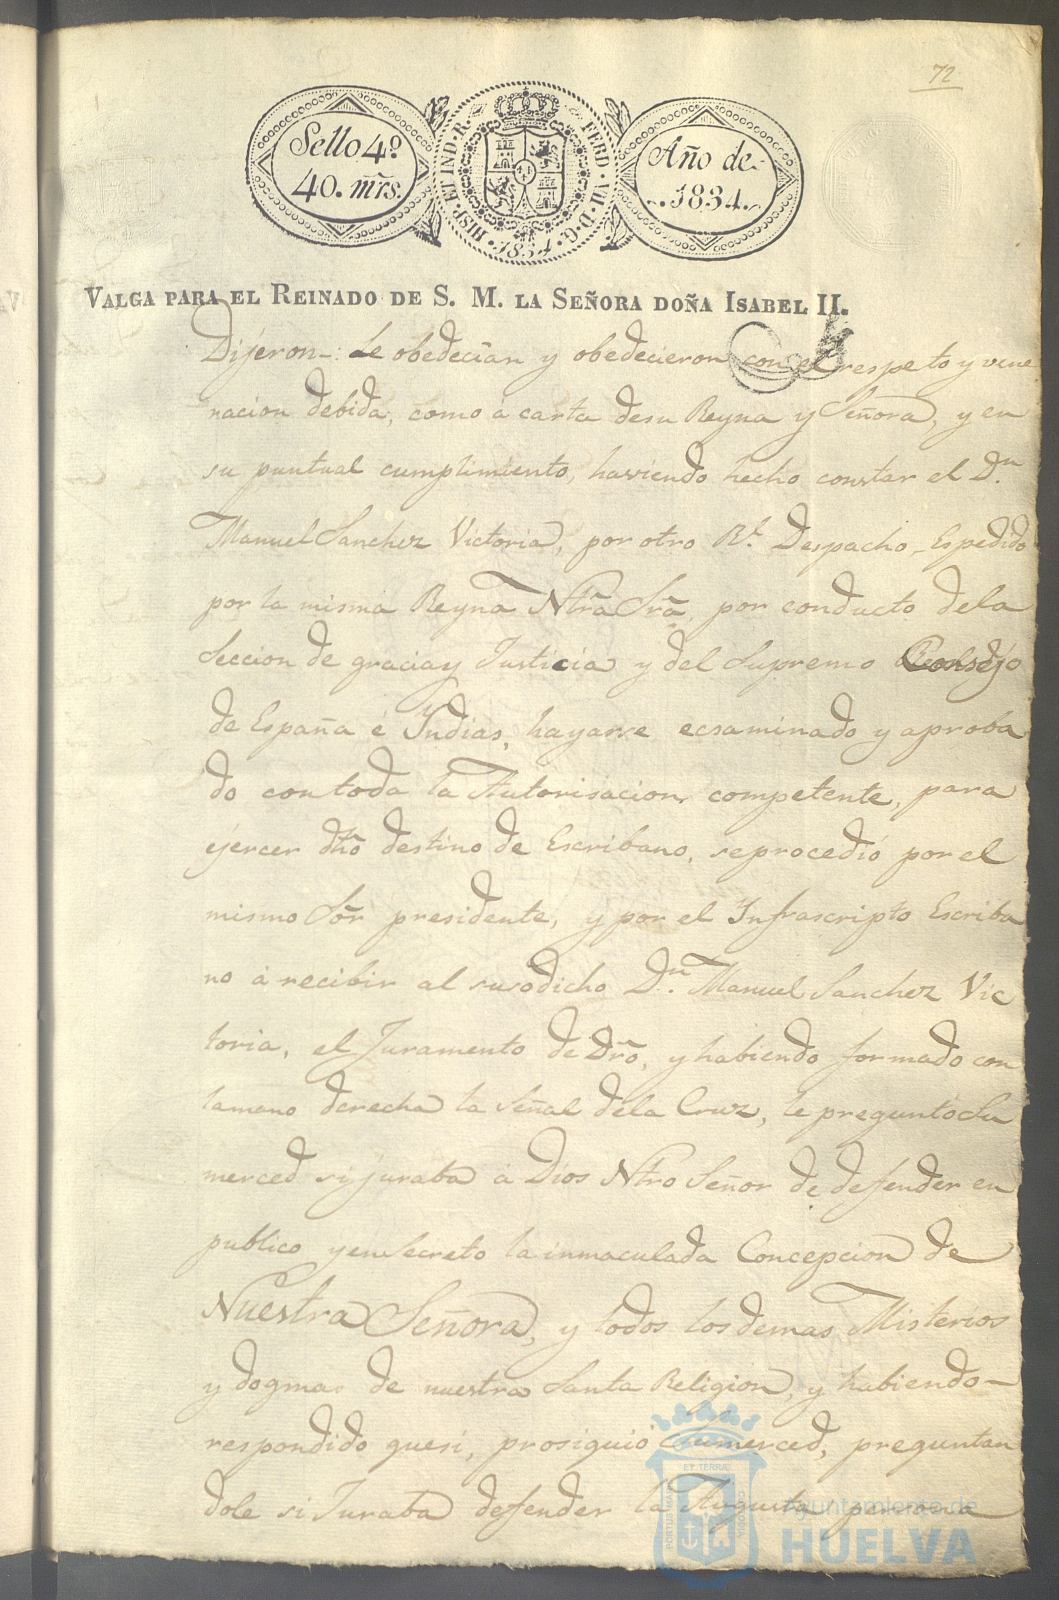 72
Sello 4º
40. mrs.
HISP. ET IND. R. FERD. VII. D. G. 1834.
Año de
1834.
VALGA PARA EL REINADO DE S. M. LA SEÑORA DOÑA ISABEL II.
Dijeron: Le obedecian y obedecieron con el respeto y vene
racion debida, como á carta de su Reyna y Señora, y en
su puntual cumplimiento, haviendo hecho constar el Dn.
Manuel Sanchez Victoria, por otro Rl. Despacho, Espedido
por la misma Reyna Ntrã Srã, por conducto dela
Seccion de gracia y Justicia y del Supremo Consejo
de España é Yndias, hayarse ecsaminado y aproba
do con toda la Autorisacion competente, para
ejercer dho destino de Escribano, se procedió por el
mismo Sor presidente, y por el Infrascripto Escriba
no á recibir al susodicho Dn. Manuel Sanchez Vic
toria, el Juramento de Dro, y habiendo formado con
la mano derecha la Señal dela Cruz, le preguntó Su
merced si juraba á Dios Ntro Señor de defender en
publico y en Secreto la inmaculada Concepcion de
Nuestra Señora, y todos los demas Misterios
y dogmas de nuestra Santa Religion, y habiendo
respondido que si, prosiguió Sumerced, preguntan
dole si Juraba defender la Augusta permoca
ET TERRAE
PORTUS MARIS
CUSTODIA
Ayuntamiento de
HUELVA